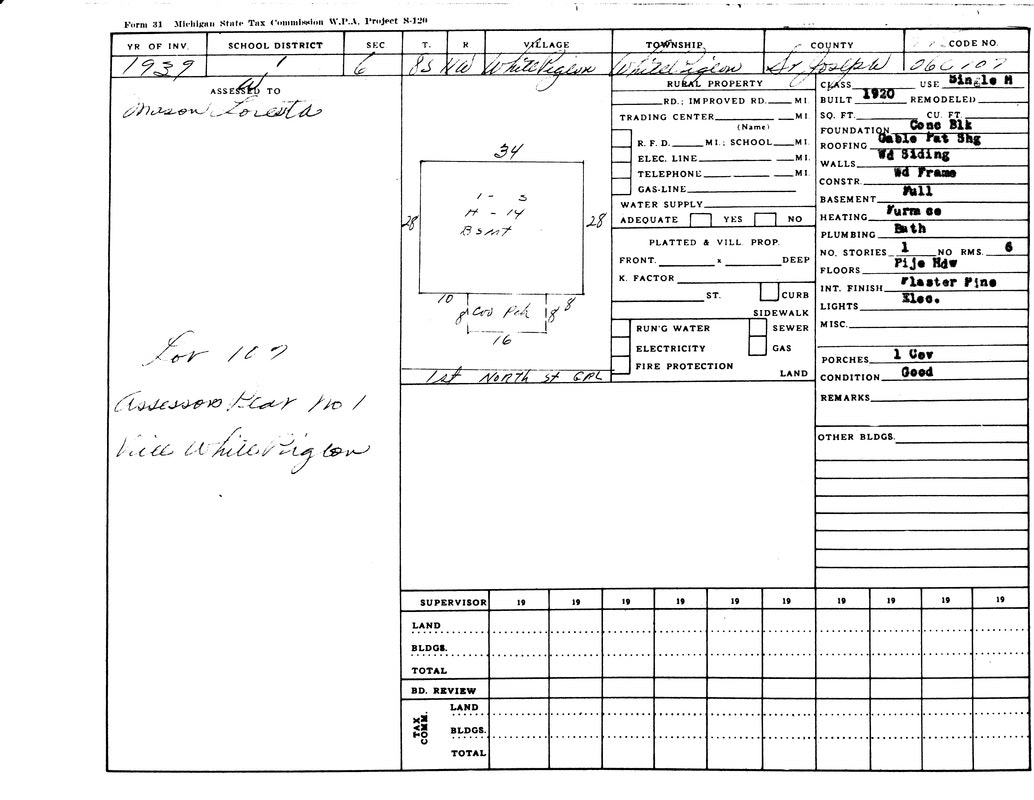 Form 31 Michigan State Tax Commission W.P.A. Project S-120
YR OF INV. SCHOOL DISTRICT SEC T. R VILLAGE TOWNSHIP COUNTY CODE NO.
1939 1 6 8S White Pigeon White Pigeon St Joseph 06C 107
ASSESSED TO
Mason Loresta
34
28 28
H - 14
Bsmt
10 8
8 Cov Pch 8
16
1st North St
Lot 107
Assessors Plat No 1
Vill White Pigeon
RURAL PROPERTY
RD.; IMPROVED RD. MI.
TRADING CENTER MI.
(Name)
R. F. D. MI.; SCHOOL MI.
ELEC. LINE MI.
TELEPHONE MI.
GAS-LINE
WATER SUPPLY
ADEQUATE YES NO
PLATTED & VILL. PROP.
FRONT. x DEEP
K. FACTOR
ST. CURB
SIDEWALK
RUN'G WATER SEWER
ELECTRICITY GAS
FIRE PROTECTION
LAND
CLASS USE Single M
BUILT 1920 REMODELED
SQ. FT. CU. FT.
FOUNDATION Conc Blk
ROOFING Gable Pat Shg
WALLS Wd Siding
CONSTR. Wd Frame
BASEMENT Full
HEATING Furnace
PLUMBING Bath
NO. STORIES 1 NO RMS. 6
FLOORS Hdw
INT. FINISH Plaster Pine
LIGHTS Elec.
MISC.
PORCHES 1 Cov
CONDITION Good
REMARKS
OTHER BLDGS.
SUPERVISOR 19 19 19 19 19 19 19 19 19 19
LAND
BLDGS.
TOTAL
BD. REVIEW
TAX COMM.
LAND
BLDGS.
TOTAL